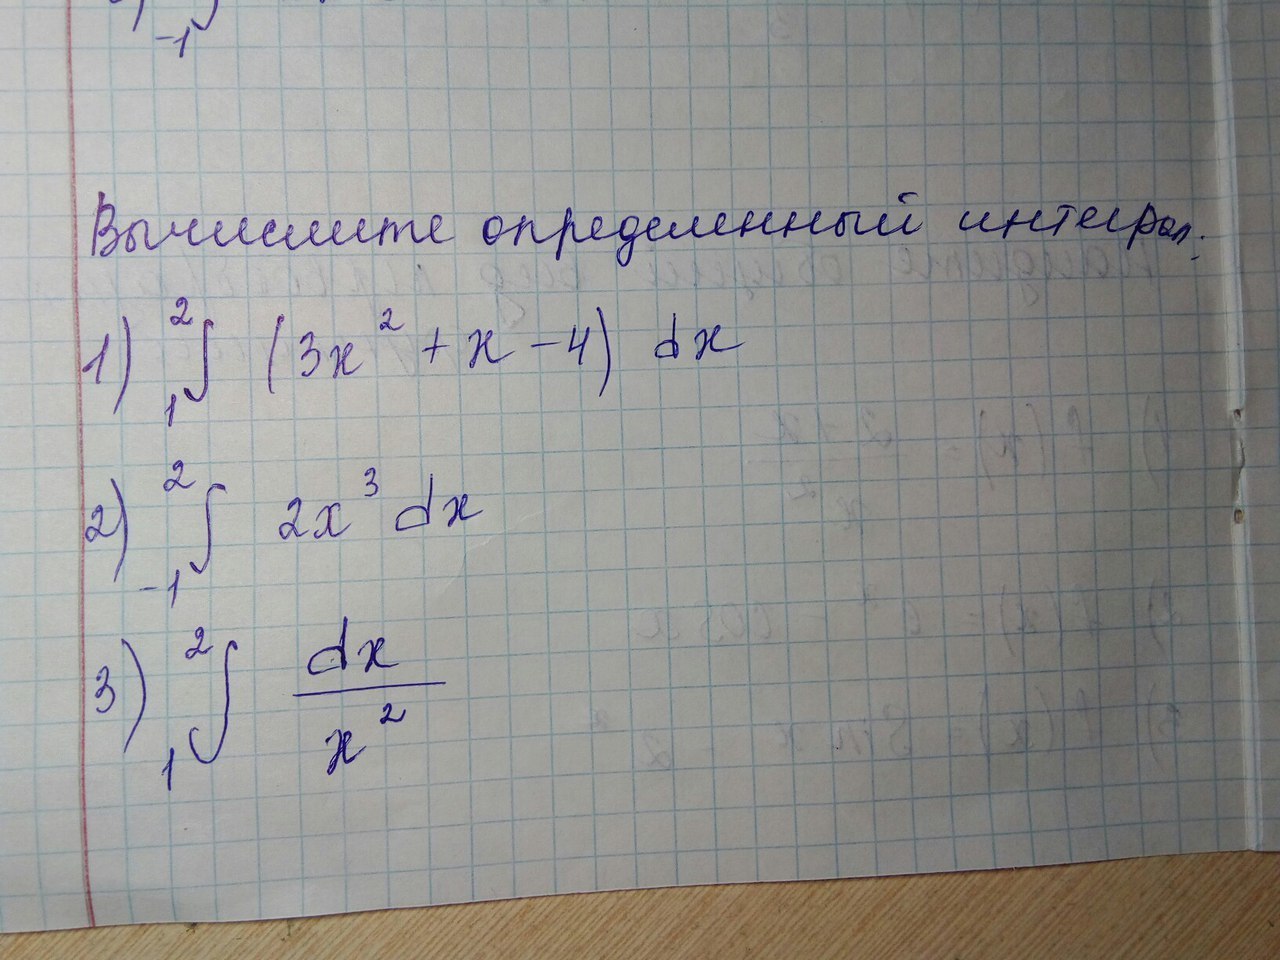 -1
Вычислите определенный интеграл.
1) ²₁∫ (3x² + x - 4) dx
2) ²₋₁∫ 2x³ dx
3) ²₁∫ dx/x²